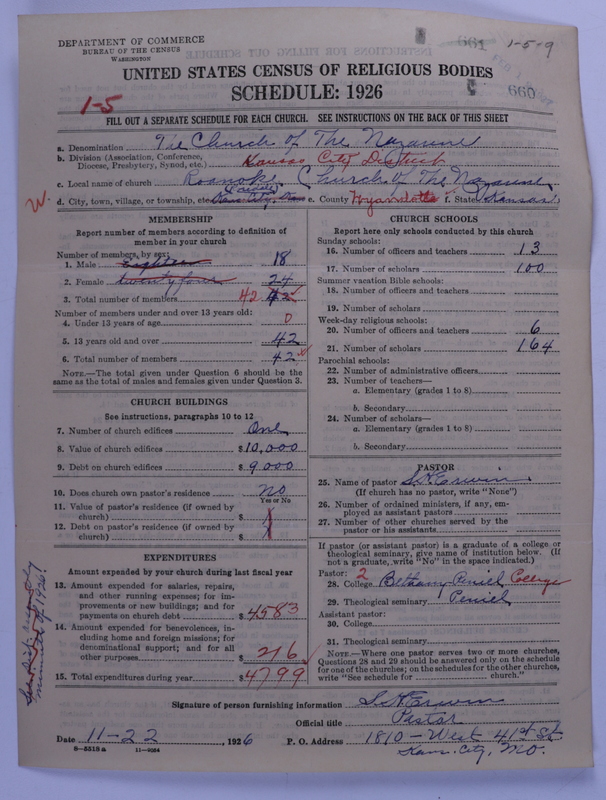 DEPARTMENT OF COMMERCE
BUREAU OF THE CENSUS
WASHINGTON
661
1-5-9
660
UNITED STATES CENSUS OF RELIGIOUS BODIES
SCHEDULE: 1926
1-5
FILL OUT A SEPARATE SCHEDULE FOR EACH CHURCH. SEE INSTRUCTIONS ON THE BACK OF THIS SHEET
a. Denomination The Church of The Nazarene
b. Division (Association, Conference, Diocese, Presbytery, Synod, etc.) Kansas City District
c. Local name of church Roanoke Church of The Nazarene
W. d. City, town, village, or township, etc. e. County Wyandotte f. State Kansas
MEMBERSHIP
Report number of members according to definition of
member in your church
Number of members, by sex:
1. Male Eighteen 18
2. Female twenty four 24
3. Total number of members 42 42
Number of members under and over 13 years old:
4. Under 13 years of age 0
5. 13 years old and over 42
6. Total number of members 42
NOTE.—The total given under Question 6 should be the
same as the total of males and females given under Question 3.
CHURCH BUILDINGS
See instructions, paragraphs 10 to 12
7. Number of church edifices One
8. Value of church edifices $10,000
9. Debt on church edifices $9000
10. Does church own pastor's residence No
Yes or No
11. Value of pastor's residence (if owned by
church) $
12. Debt on pastor's residence (if owned by
church) $
EXPENDITURES
Amount expended by your church during last fiscal year
13. Amount expended for salaries, repairs,
and other running expenses; for im-
provements or new buildings; and for
payments on church debt $4583
14. Amount expended for benevolences, in-
cluding home and foreign missions; for
denominational support; and for all
other purposes $216
15. Total expenditures during year $4799
CHURCH SCHOOLS
Report here only schools conducted by this church
Sunday schools:
16. Number of officers and teachers 13
17. Number of scholars 100
Summer vacation Bible schools:
18. Number of officers and teachers
19. Number of scholars
Week-day religious schools:
20. Number of officers and teachers 6
21. Number of scholars 164
Parochial schools:
22. Number of administrative officers
23. Number of teachers—
a. Elementary (grades 1 to 8)
b. Secondary
24. Number of scholars—
a. Elementary (grades 1 to 8)
b. Secondary
PASTOR
25. Name of pastor S. H. Erwin
(If church has no pastor, write "None")
26. Number of ordained ministers, if any, em-
ployed as assistant pastors
27. Number of other churches served by the
pastor or his assistants
If pastor (or assistant pastor) is a graduate of a college or
theological seminary, give name of institution below. (If
not a graduate, write "No" in the space indicated.)
Pastor: 2
28. College Bethany Peniel College
29. Theological seminary Peniel
Assistant pastor:
30. College
31. Theological seminary
NOTE.—Where one pastor serves two or more churches,
Questions 28 and 29 should be answered only on the schedule
for one of the churches; on the schedules for the other churches,
write "See schedule for church."
Signature of person furnishing information S. H. Erwin
Official title Pastor
Date 11-22, 1926 P. O. Address 1810 - West 41st St.
Kans. City, Mo.
8—5518a 11—9264